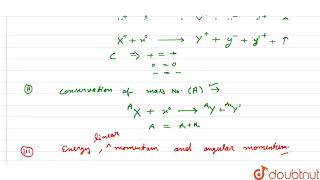 X⁺ + x⁰ ⟶ Y⁺ + y⁻ + y'⁺ + ↑
C ⇒ + = +
0 = 0
- = -
(ii) conservation of mass No. (A) →
ᴬX + x⁰ ⟶ ᴬ¹Y + ᴬ²Y'
A = A₁ + A₂
(iii) Energy, linear momentum and angular momentum.
doubtnut